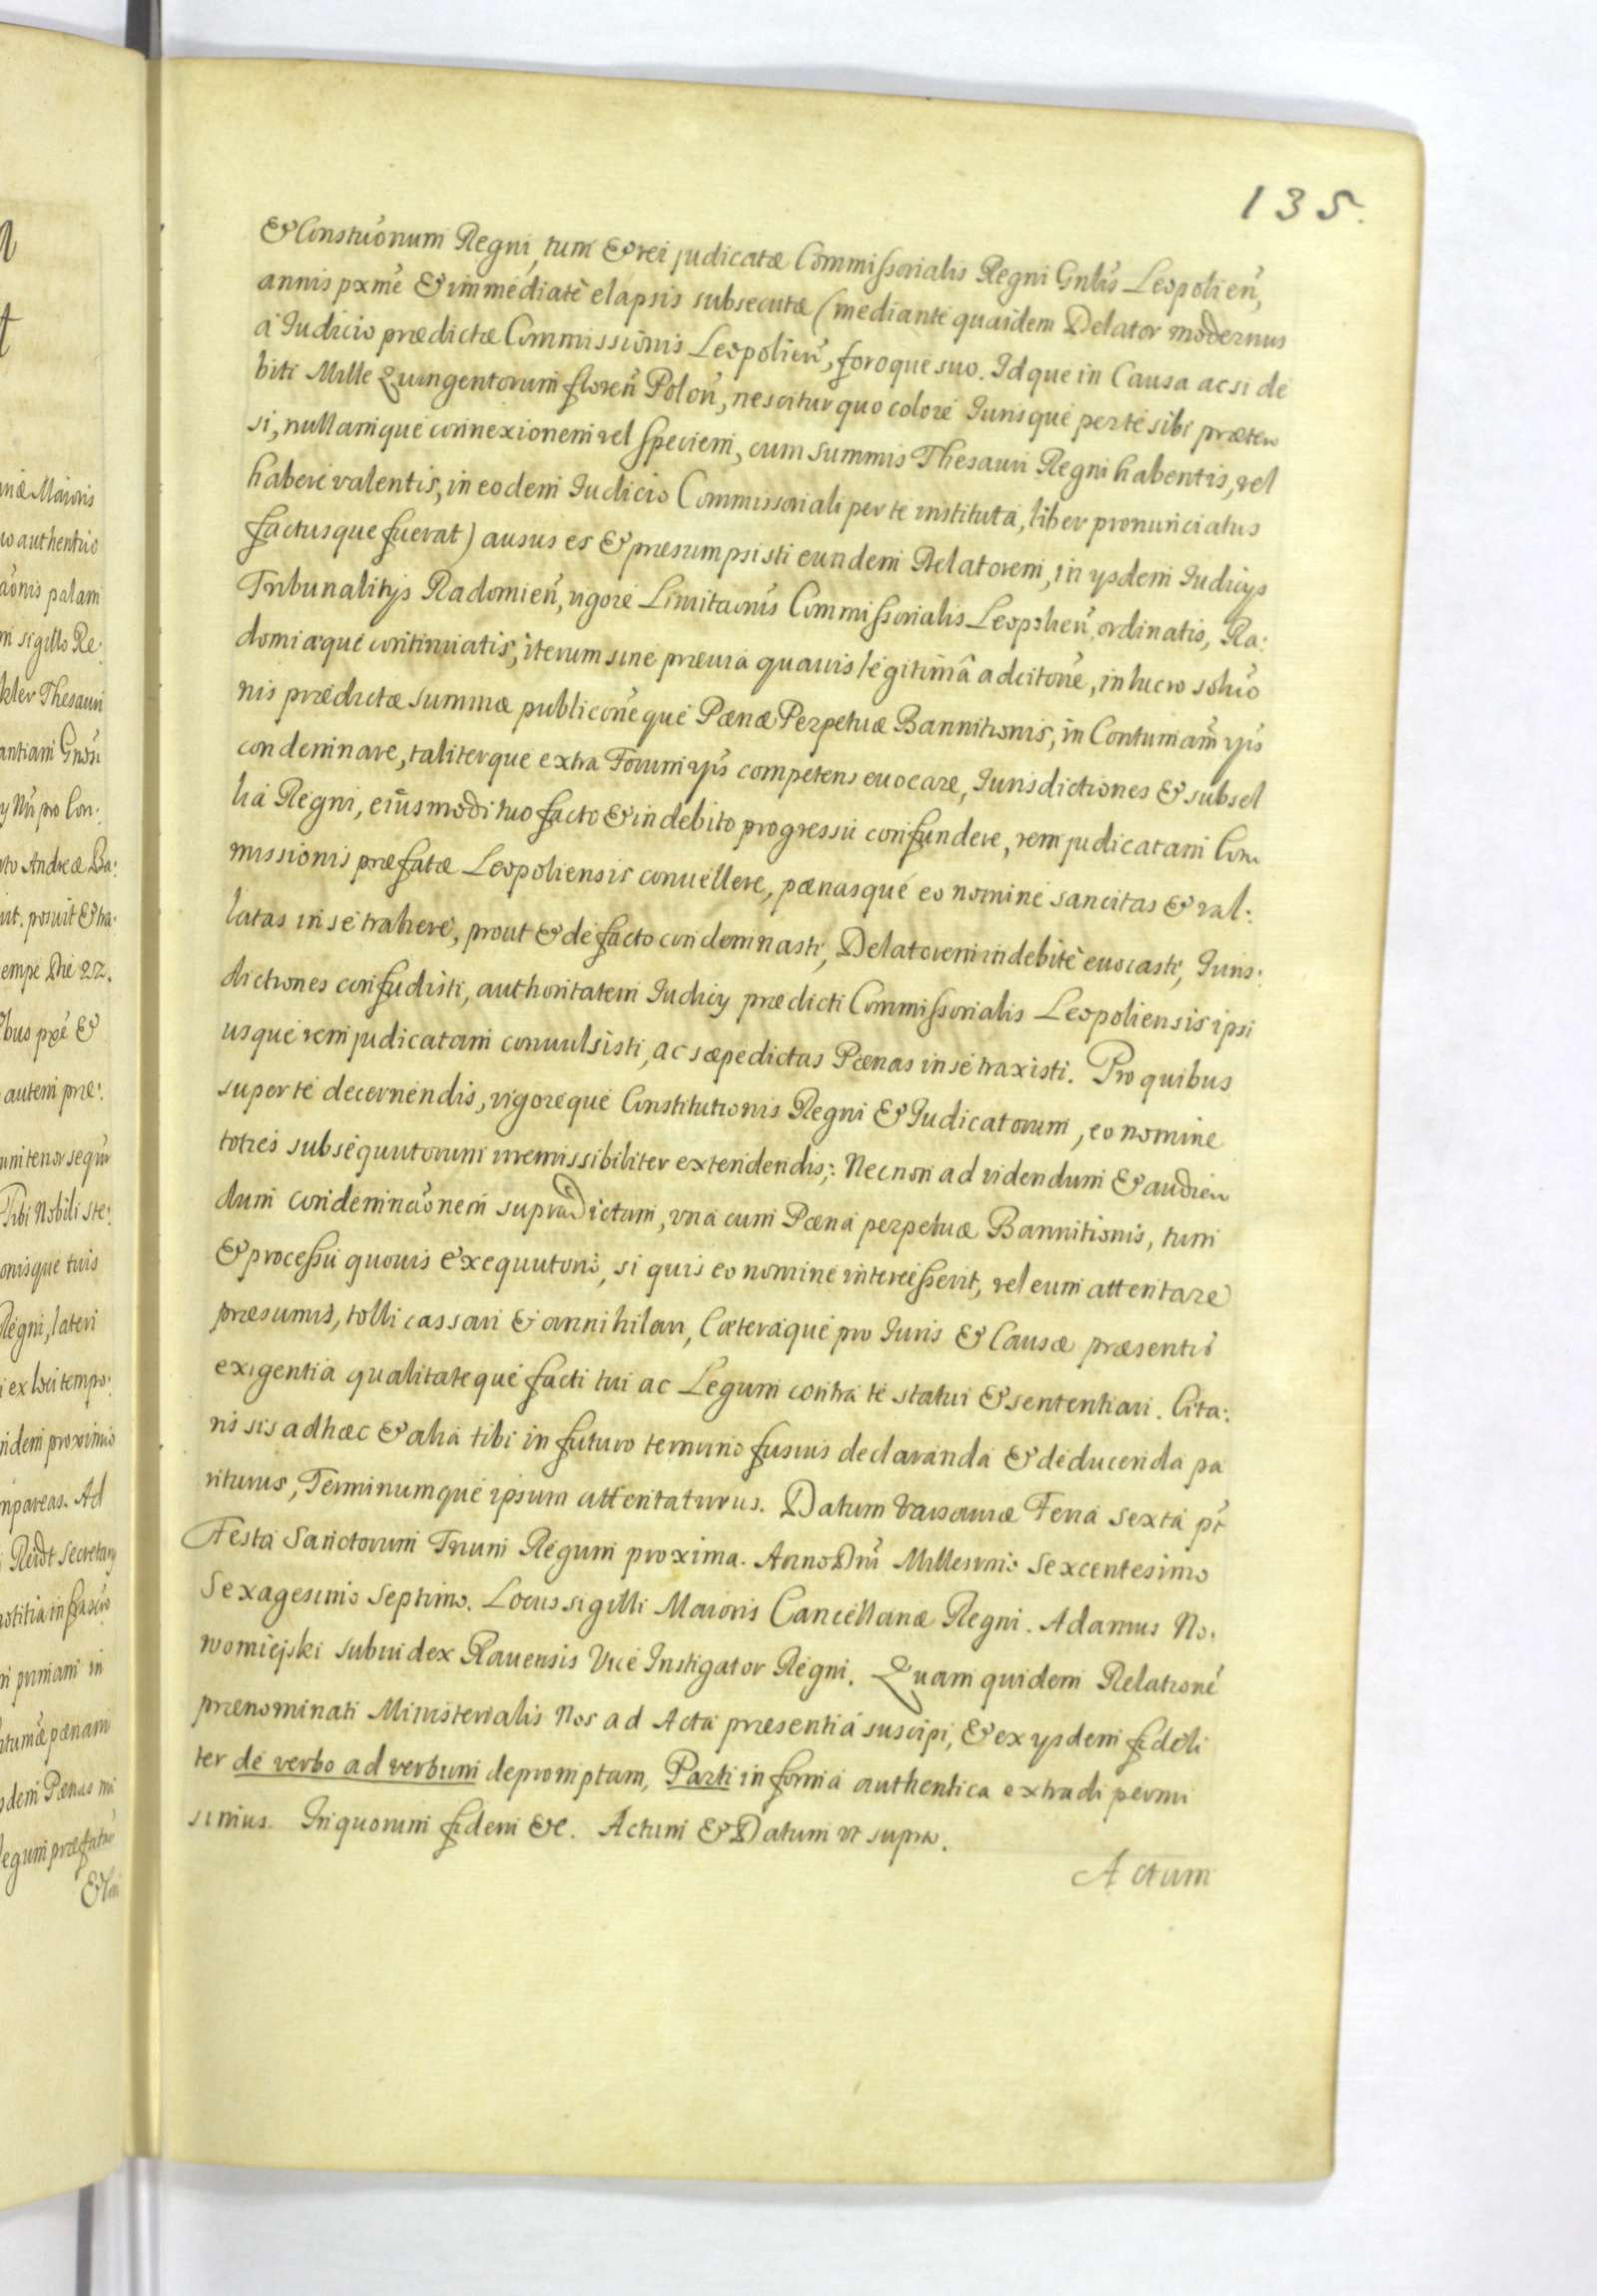 135.
& Constuonum Regni, tum & rei judicatæ Commissorialis Regni Gnlis Leopolien,
annis pxme & immediatè elapsis subsecutæ (mediante quaidem Delator modernus
a Iudicio prædictæ Commissionis Leopolien, foroque suo. Idque in Causa acsi de
biti Mille Quingentorum floren Polon, nescitur quo colore Iurisque per te sibi præten
si, nullamque connexionem vel speciem, cum summis Thesauri Regni habentis, vel
habere valentis, in eodem Iudicio Commissoriali per te instituta, liber pronunciatus
factusque fuerat) ausus es & præsumpsisti eundem Relatorem, in ysdem Iudicys
Tribunalitys Radomien, vigore Limitaonis Commissorialis Leopolien, ordinatis, Ra:
domiæque continuatis, iterum sine prævia quavis legitimâ adcitone, in lucro soluo
nis prædictæ summæ publiconeque Pænæ Perpetuæ Bannitionis, in Contumam yps
condemnare, taliterque extra Forum yps competens euocare, Iurisdictiones & subsel
lia Regni, eiusmodi tuo facto & indebito progressu confundere, rem judicatam Com
missionis præfatæ Leopoliensis conuellere, pænasque eo nomine sancitas & val:
latas in se trahere, prout & de facto condemnasti, Delatorem indebitè euocasti, Iuris:
dictiones confudisti, authoritatem Iudicy prædicti Commissorialis Leopoliensis ipsi
usque rem judicatam conuulsisti, ac sæpedictas Pænas in se traxisti. Pro quibus
super te decernendis, vigoreque Constitutionis Regni & Iudicatorum, eo nomine
toties subsequutorum irremissibiliter extendendis; Necnon ad videndum & audien
dum condemnaonem supra Dictam, vna cum Pæna perpetuæ Bannitionis, tum
& processu quouis exequutorio, si quis eo nomine intercesserit, vel eum attentare
præsumis, tolli cassari & annihilari, Cæteraque pro Iuris & Causæ præsentis
exigentia qualitateque facti tui ac Legum contra te statui & sententiari. Cita:
ris sis ad hæc & alia tibi in futuro termino fusius declaranda & deducenda pa
riturus, Terminumque ipsum attentaturus. Datum Varsauiæ Feria sexta pt
Festa Sanctorum Trium Regum proxima. Anno Dni Millesimo Sexcentesimo
Sexagesimo Septimo. Locus sigilli Maioris Cancellariæ Regni. Adamus No:
womiejski subiudex Rauensis Vice Instigator Regni. Quam quidem Relatione
prænominati Ministerialis Nos ad Acta præsentia suscipi, & ex ysdem fideli
ter de verbo ad verbum depromptam, Parti in forma authentica extradi permi
simus. In quorum fidem &c. Actum & Datum vt supra.
Actum